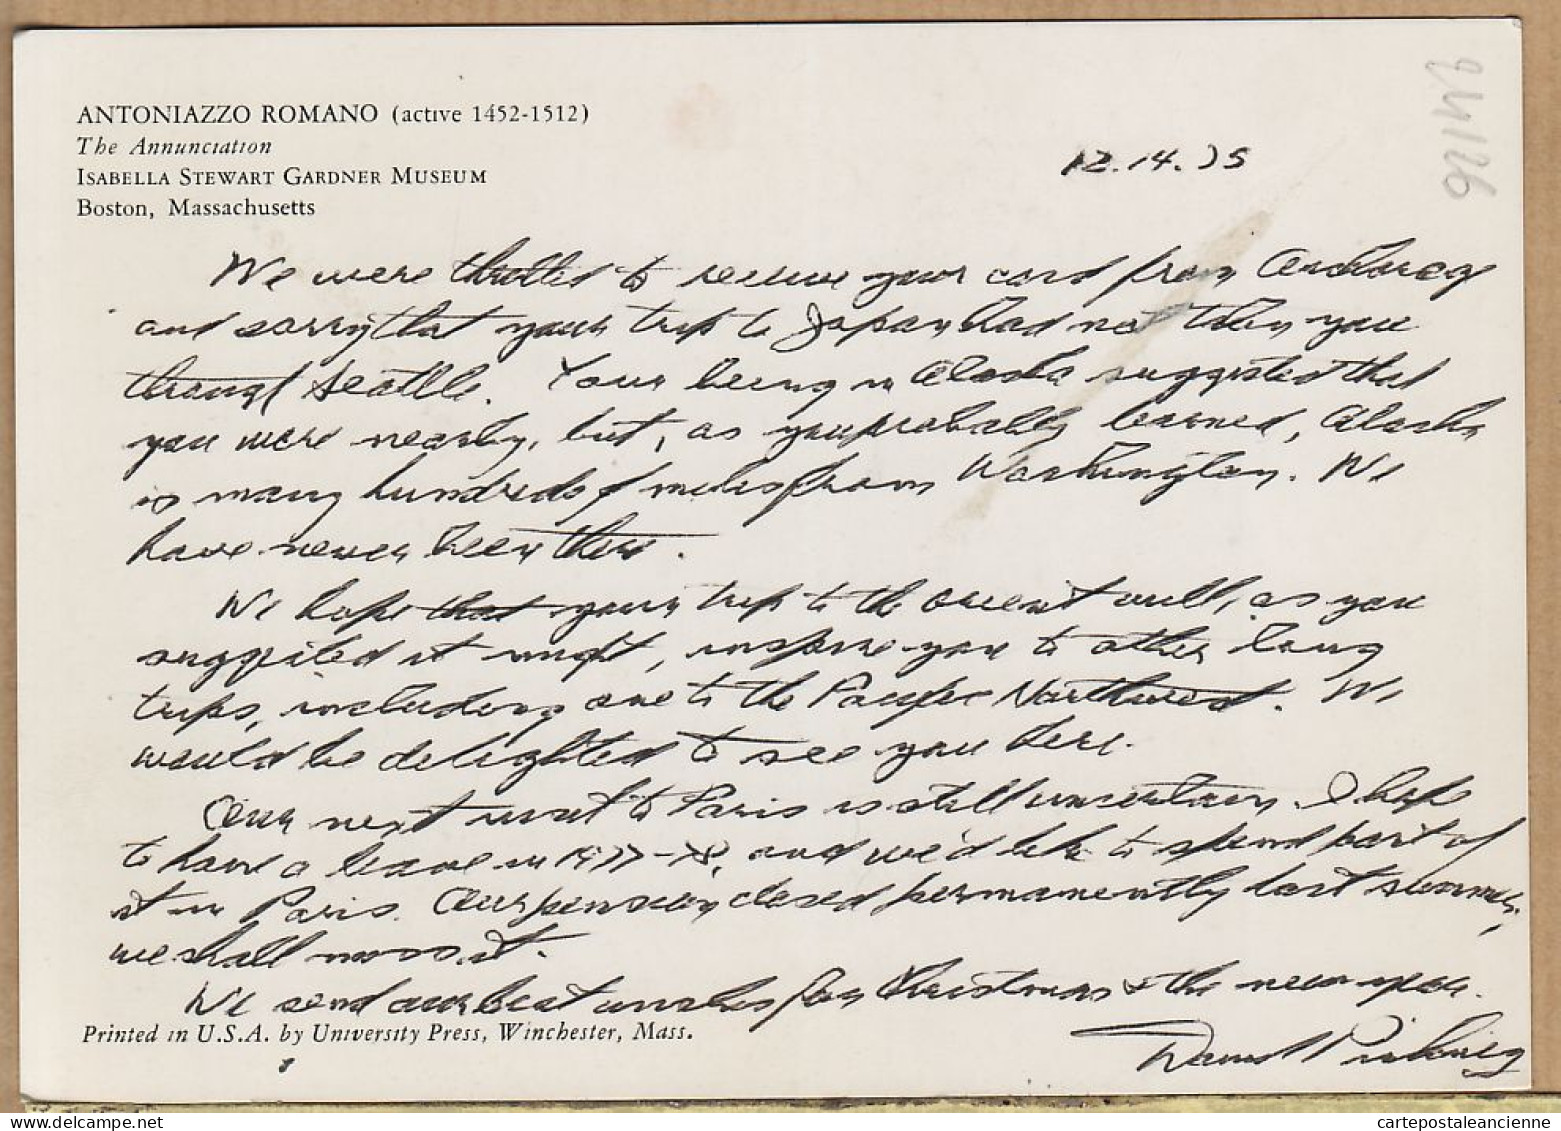 ANTONIAZZO ROMANO (active 1452-1512)
The Annunciation
ISABELLA STEWART GARDNER MUSEUM
Boston, Massachusetts
12.14.75
94126
We were thrilled to receive your card from Anchorage
and sorry that your trip to Japan had not taken you
through Seattle. Your being in Alaska suggested that
you were nearby, but, as you probably learned, Alaska
is many hundreds of miles from Washington. We
have never been there.
We hope that your trip to the orient will, as you
suggested it might, inspire you to other long
trips, including one to the Pacific Northwest. We
would be delighted to see you here.
Our next visit to Paris is still uncertain. I hope
to have a leave in 1977-78, and we'd like to spend part of
it in Paris. Our pension closed permanently last summer;
we shall miss it.
We send our best wishes for Christmas & the new year.
Printed in U.S.A. by University Press, Winchester, Mass.
cartepostaleancienne